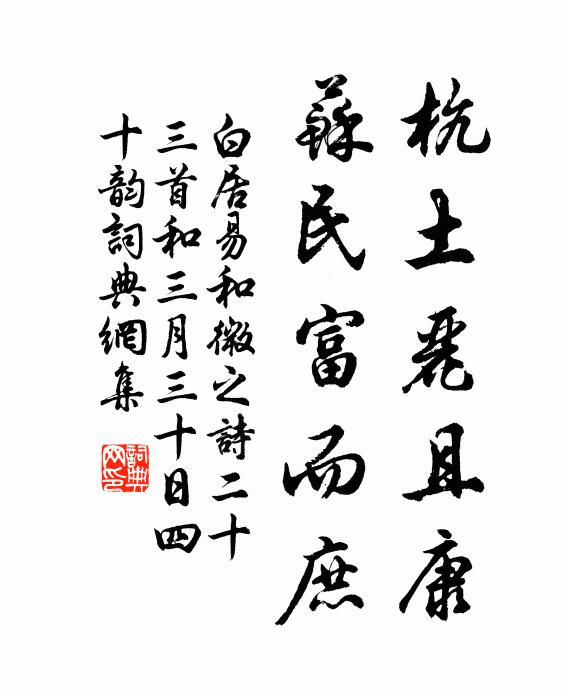 杭土麗且康
蘇民富而庶
白居易和微之詩二十
三首和三月三十日四
十韵詞典網集
詞典网印